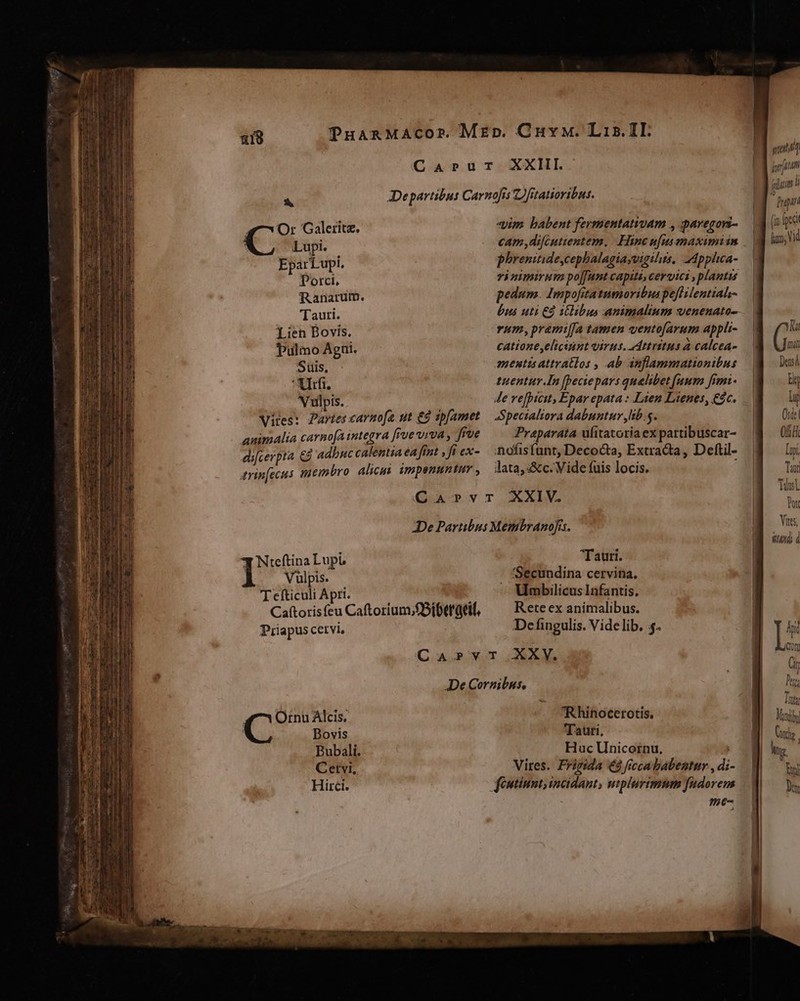 218 PHARMACOP. MED. CHYM. LIB. II.
CAPUT XXIII.
De partibus Carnosis Usitatioribus.
COr Galeritæ.
Lupi.
Epar Lupi.
Porci.
Ranarum.
Tauri.
Lien Bovis.
Pulmo Agni.
Suis.
Ursi.
Vulpis.
Vires: Partes carnosa ut & ipsamet
animalia carnosa integra sive viva, sive
discerpta & adhuc calentia ea sint, si ex-
trinsecus membro alicui imponuntur,
vim habent fermentativam, paregori-
cam, discutientem. Hinc usus maximi in
phrenitide, cephalagia, vigiliis. Applica-
ri nimirum possunt capiti, cervici, plantis
pedum. Imposita tumoribus pestilentiali-
bus uti & ictibus animalium venenato-
rum, præmissa tamen ventosarum appli-
catione, eliciunt virus. Attritus à calcea-
mentis attractos, ab inflammationibus
tuentur. In specie pars quælibet suum simi-
le respicit, Epar epata: Lien Lienes, &c.
Specialiora dabuntur, lib. 5.
Præparata usitatoria ex partibus car-
nosis sunt, Decocta, Extracta, Destil-
lata, &c. Vide suis locis.
CAPVT XXIV.
De Partibus Membranosis.
INtestina Lupi.
Vulpis.
Testiculi Apri.
Castoris seu Castorium, Bibergeil.
Priapus cervi.
Tauri.
Secundina cervina.
Umbilicus Infantis.
Rete ex animalibus.
De singulis. Vide lib. 5.
CAPVT XXV.
De Cornibus.
COrnu Alcis.
Bovis
Bubali.
Cervi.
Hirci.
Rhinocerotis.
Tauri.
Huc Unicornu.
Vires. Frigida & sicca habentur, di-
scutiunt, incidant, utplurimum sudorem
me-